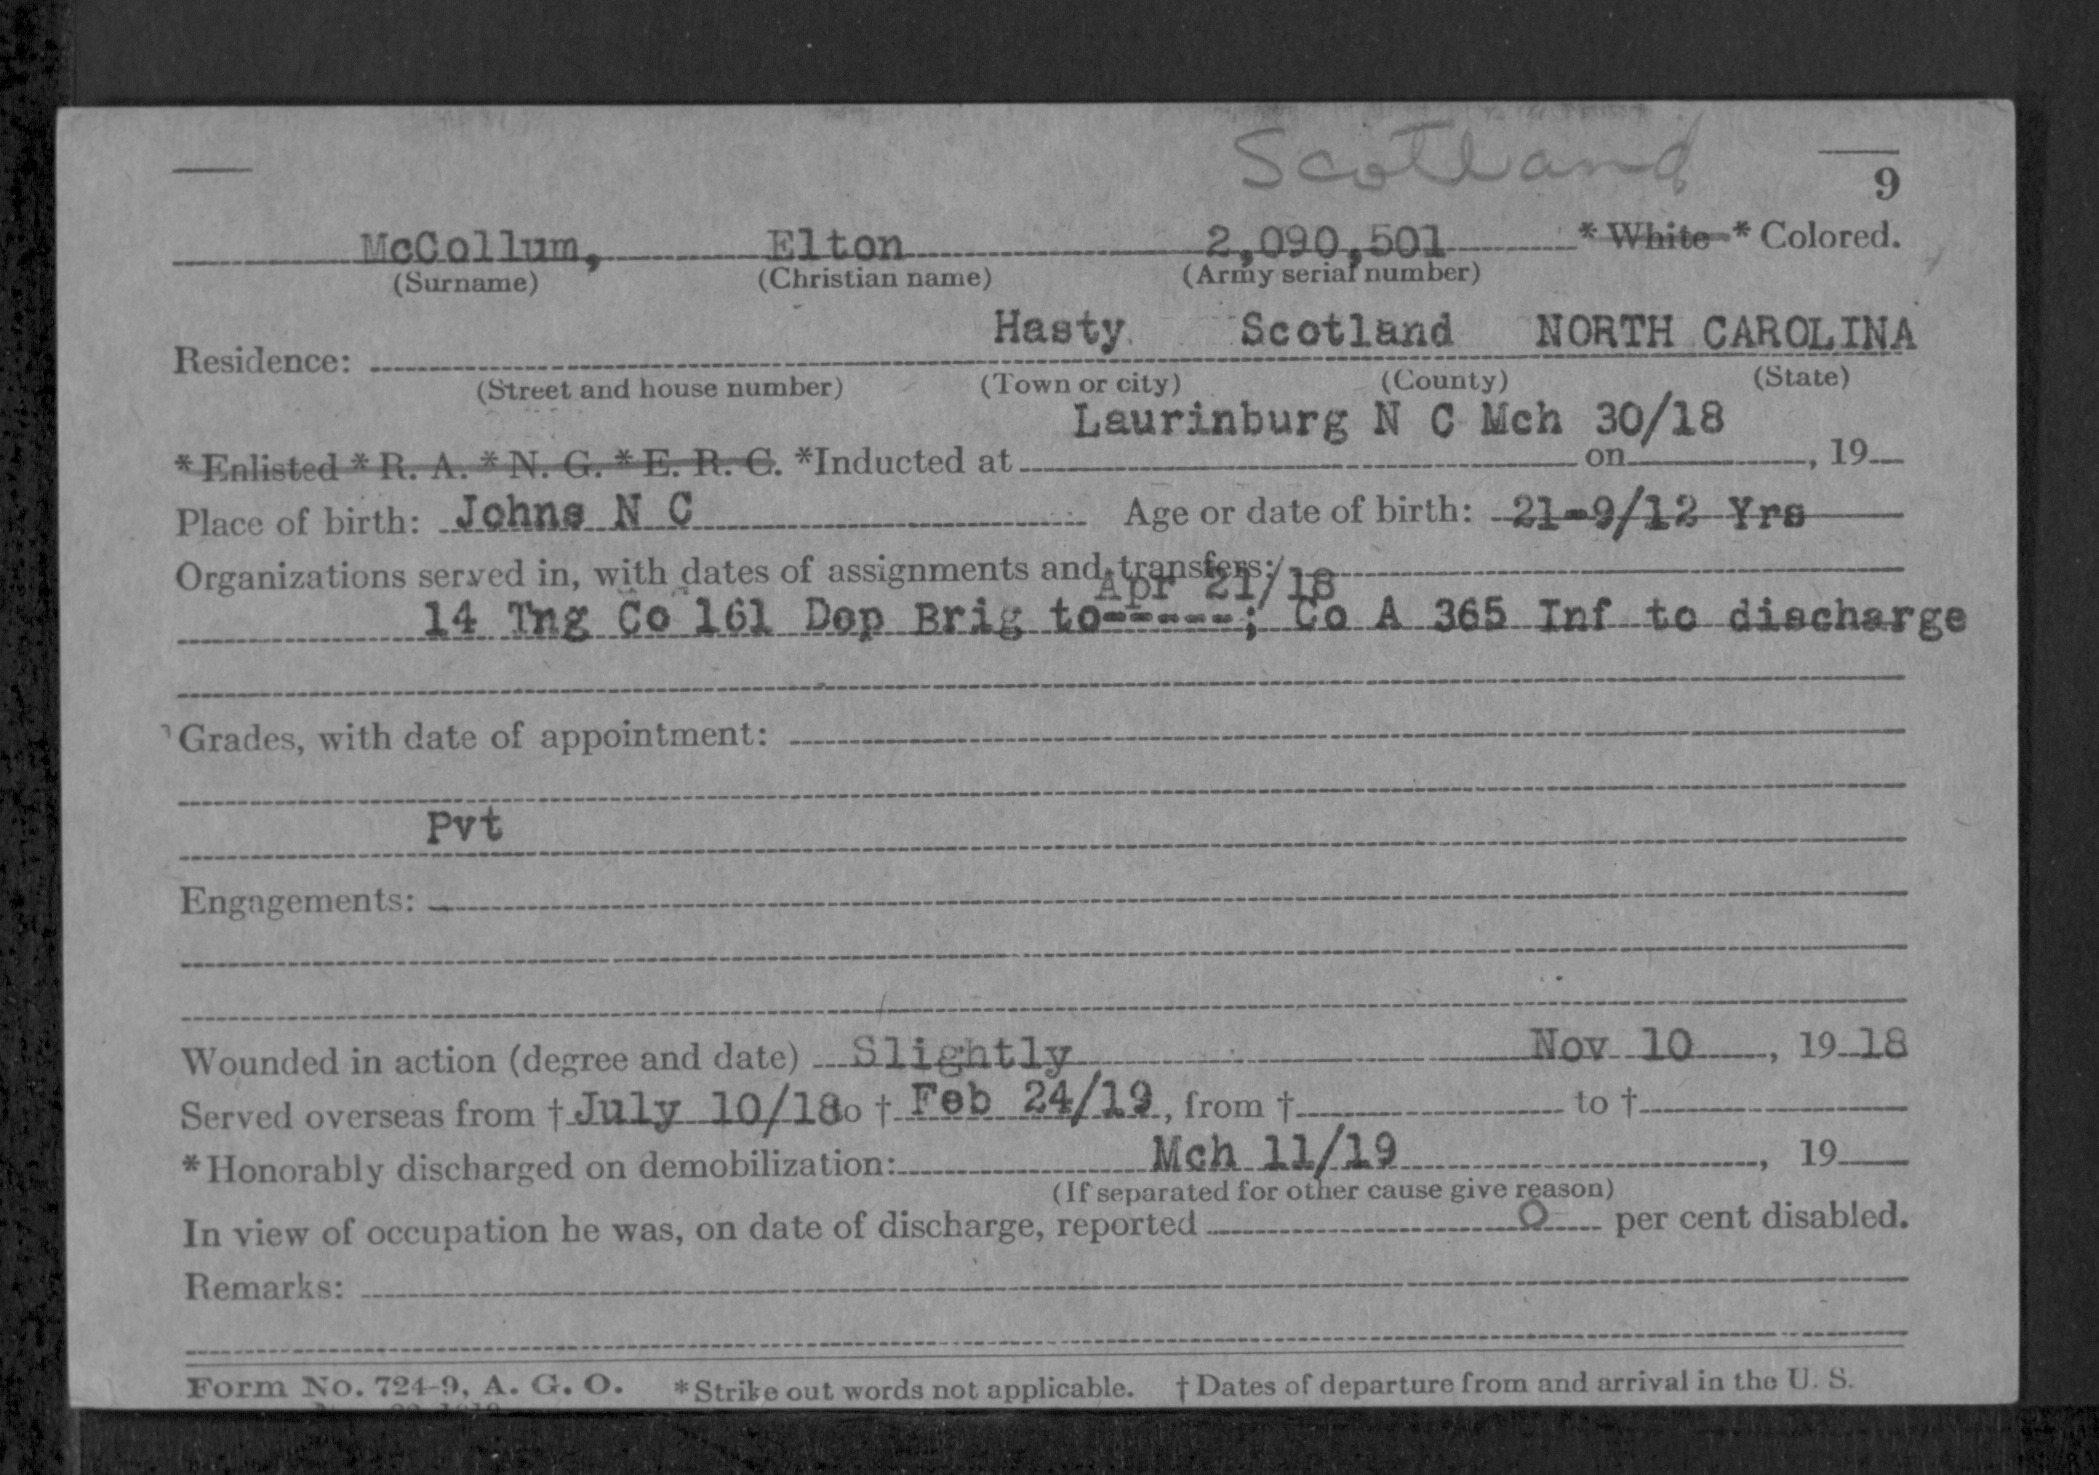 Scotland
9
McCollum, Elton 2,090,501 * White * Colored.
(Surname) (Christian name) (Army serial number)
Hasty Scotland NORTH CAROLINA
Residence:
(Street and house number) (Town or city) (County) (State)
Laurinburg N C Mch 30/18
* Enlisted * R. A. * N. G. * E. R. C. *Inducted at on , 19
Place of birth: Johns N C Age or date of birth: 21-9/12 Yrs
Organizations served in, with dates of assignments and transfers:
Apr 21/18
14 Tng Co 161 Dep Brig to-----; Co A 365 Inf to discharge
Grades, with date of appointment:
Pvt
Engagements:
Wounded in action (degree and date) Slightly Nov 10 , 19 18
Served overseas from † July 10/18 to † Feb 24/19, from † to †
* Honorably discharged on demobilization: Mch 11/19 , 19
(If separated for other cause give reason)
In view of occupation he was, on date of discharge, reported 0 per cent disabled.
Remarks:
Form No. 724-9, A. G. O. * Strike out words not applicable. † Dates of departure from and arrival in the U. S.